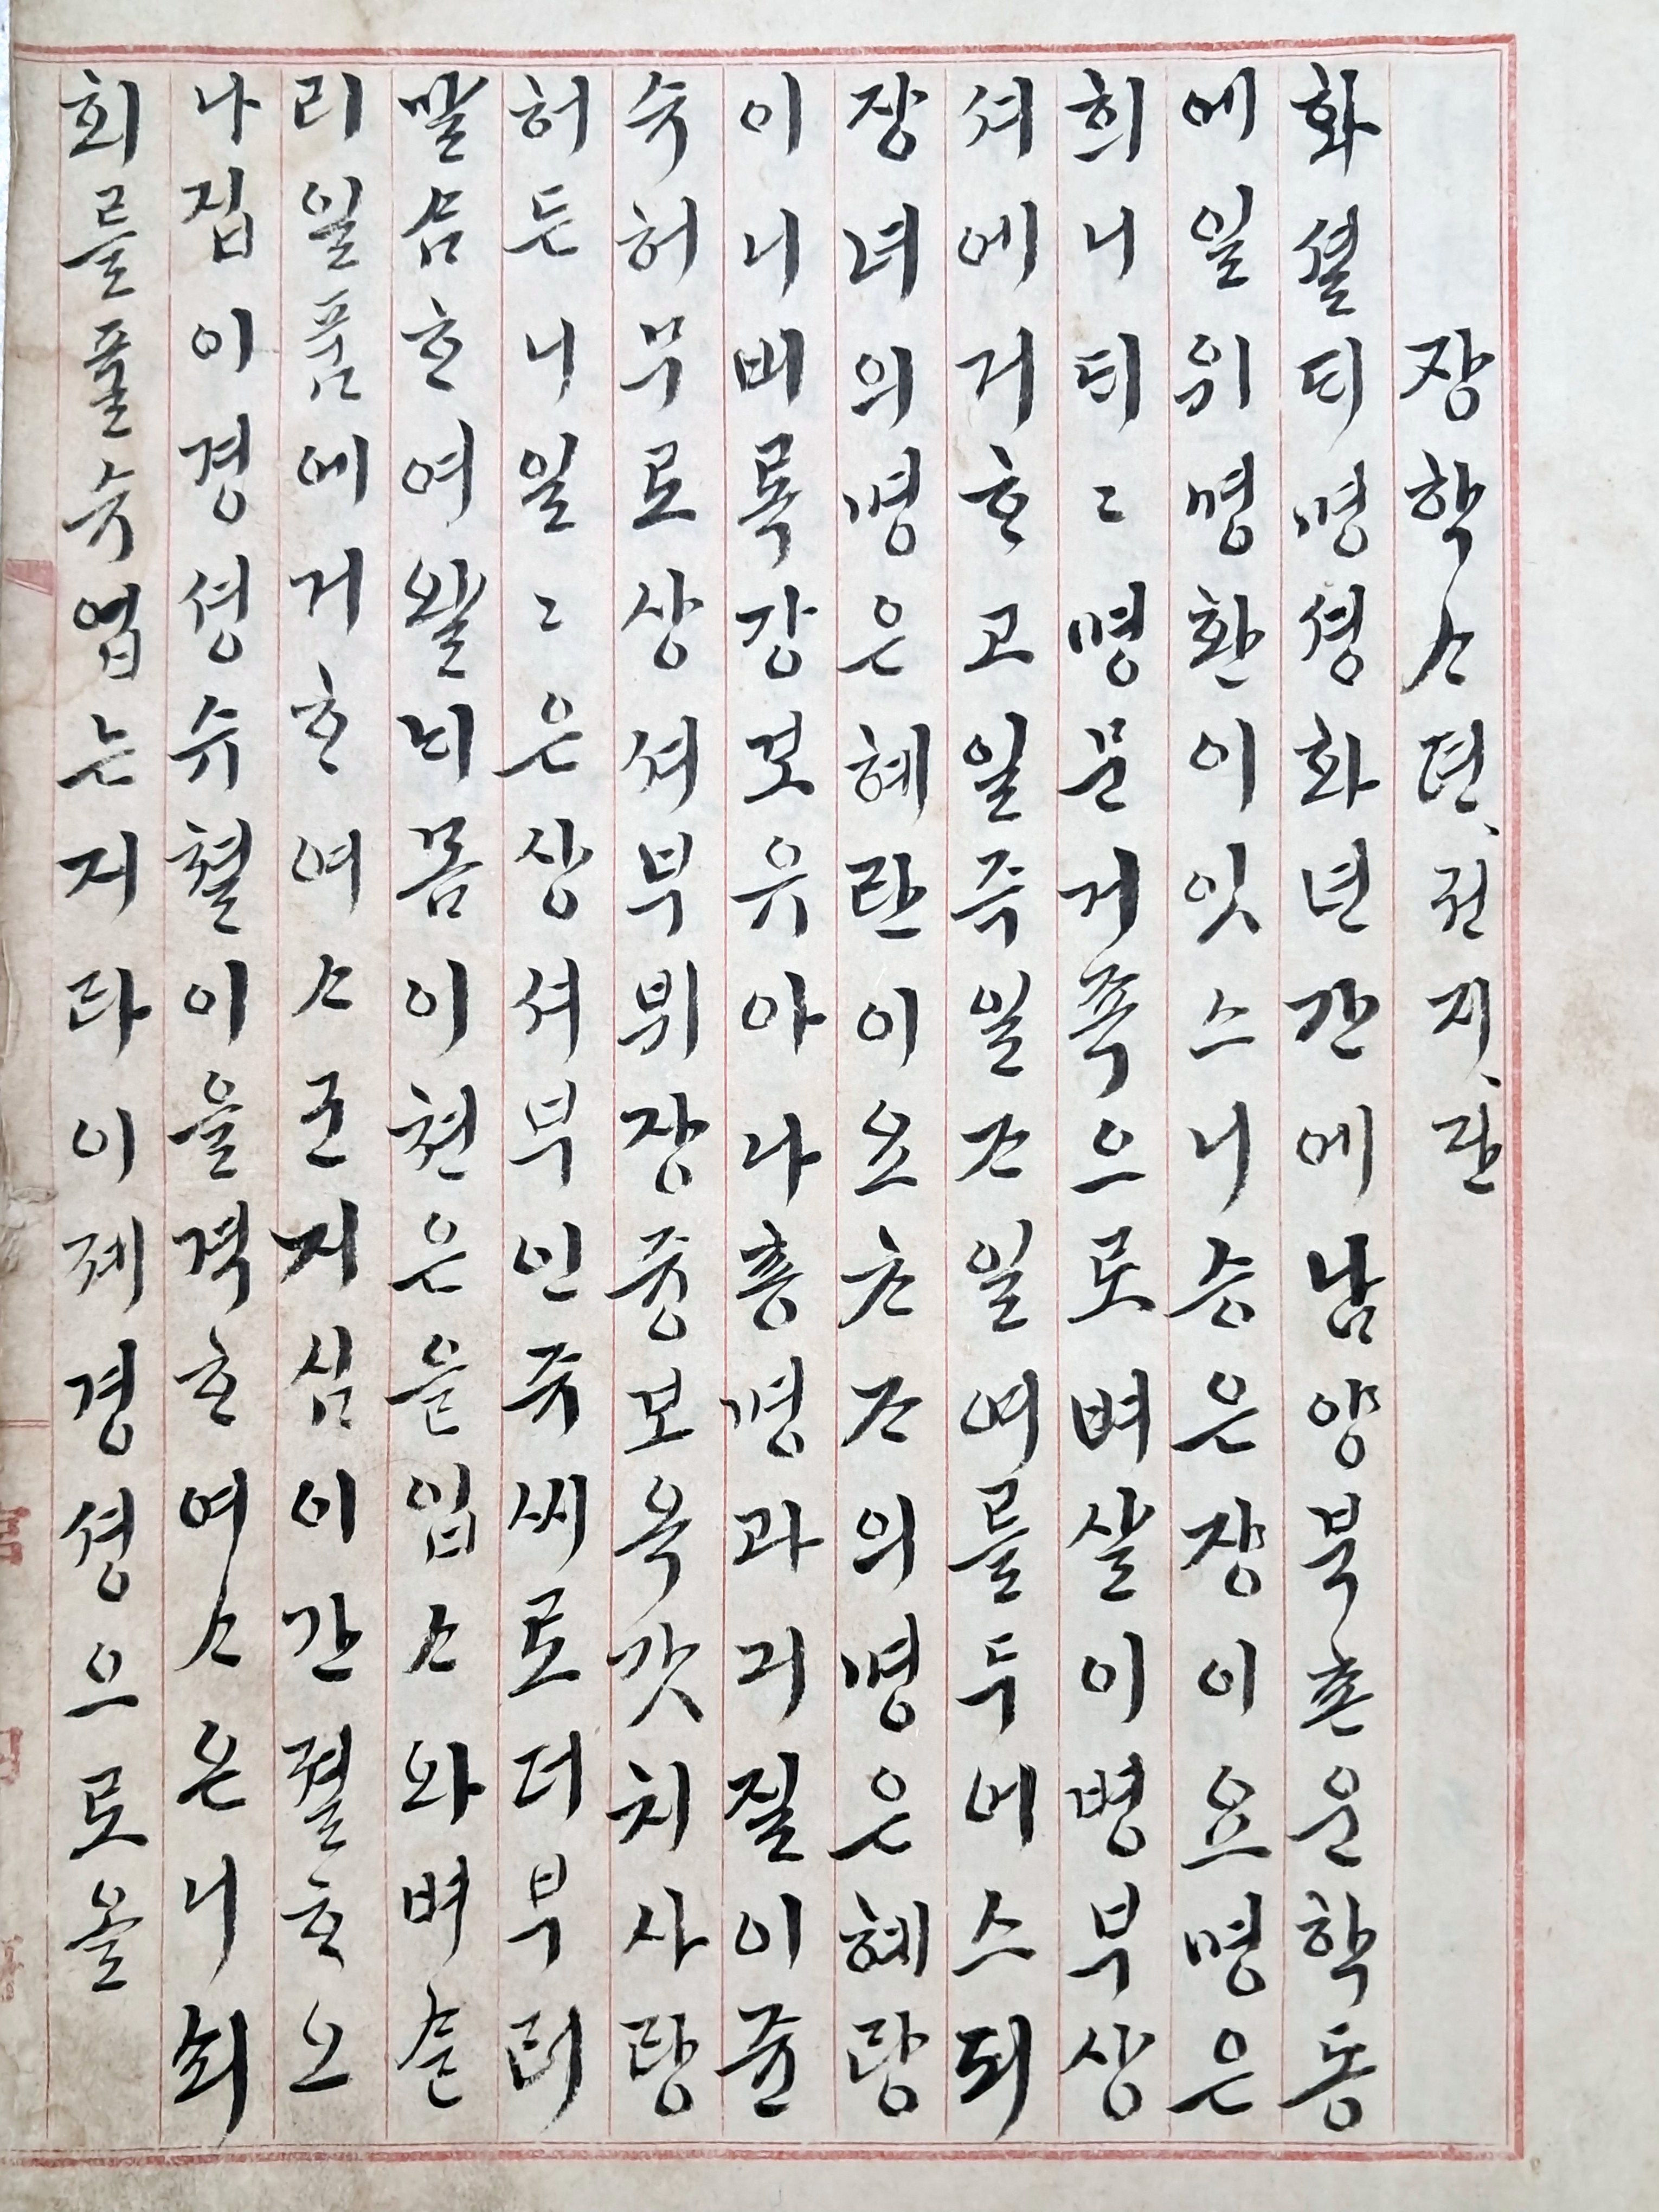 쟝학ᄉᆞ뎐、권지、단
화셜ᄃᆡ명셩화년간에남양북촌운학동
에일위명환이잇스니승은쟝이요명은
희니ᄃᆡ〻명문거죡으로벼살이병부상
셔에거ᄒᆞ고일즉일ᄌᆞ일여를두어스되
장녀의명은혜란이요ᄎᆞᄌᆞ의명은혜랑
이니비록강보유아나춍명과긔질이쥰
수허무로상셔부뷔장즁보옥갓치사랑
허든니일〻은상셔부인쥬씨로더부러
말슴ᄒᆞ여왈ᄂᆡ몸이쳔은을입ᄉᆞ와벼슬
리일품에거ᄒᆞ여ᄉᆞ군지심이간졀ᄒᆞ오
나집이경셩슈쳘이을격ᄒᆞ여ᄉᆞ온니쇠
회를풀슈업는지라이졔경셩으로올